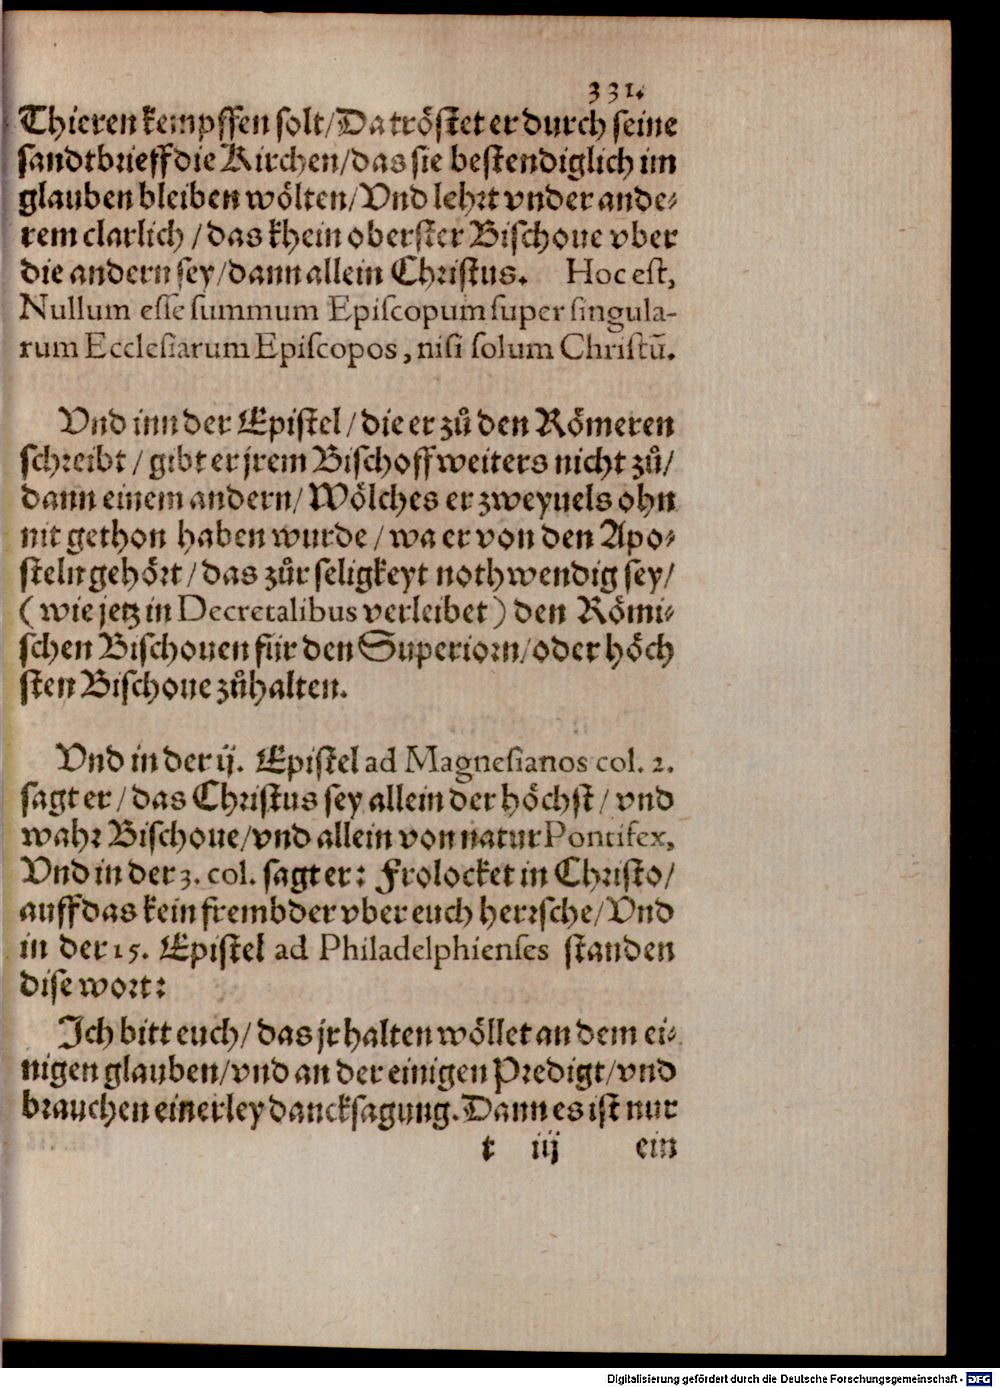 331.
Thieren kempffen solt/Da tröstet er durch seine
sandtbrieff die Kirchen/das sie bestendiglich im
glauben bleiben wölten/Vnd lehrt vnder ande⸗
rem clarlich/das khein oberster Bischoue vber
die andern sey/dann allein Christus. Hoc est,
Nullum esse summum Episcopum super singula-
rum Ecclesiarum Episcopos, nisi solum Christũ.
Vnd inn der Epistel/die er zů den Römeren
schreibt/gibt er jrem Bischoff weiters nicht zů/
dann einem andern/Wölches er zweyuels ohn
nit gethon haben wurde/wa er von den Apo⸗
steln gehört/das zůr seligkeyt nothwendig sey/
(wie jetz in Decretalibus verleibet) den Römi⸗
schen Bischouen für den Superiorn/oder höch
sten Bischoue zůhalten.
Vnd in der ij. Epistel ad Magnesianos col. 2.
sagt er/das Christus sey allein der höchst/vnd
wahr Bischoue/vnd allein von natur Pontifex,
Vnd in der 3. col. sagt er: Frolocket in Christo/
auff das kein frembder vber euch herrsche/Vnd
in der 15. Epistel ad Philadelphienses standen
dise wort:
Ich bitt euch/das jr halten wöllet an dem ei⸗
nigen glauben/vnd an der einigen Predigt/vnd
brauchen einerley dancksagung. Dann es ist nur
t iij ein
Digitalisierung gefördert durch die Deutsche Forschungsgemeinschaft - DFG